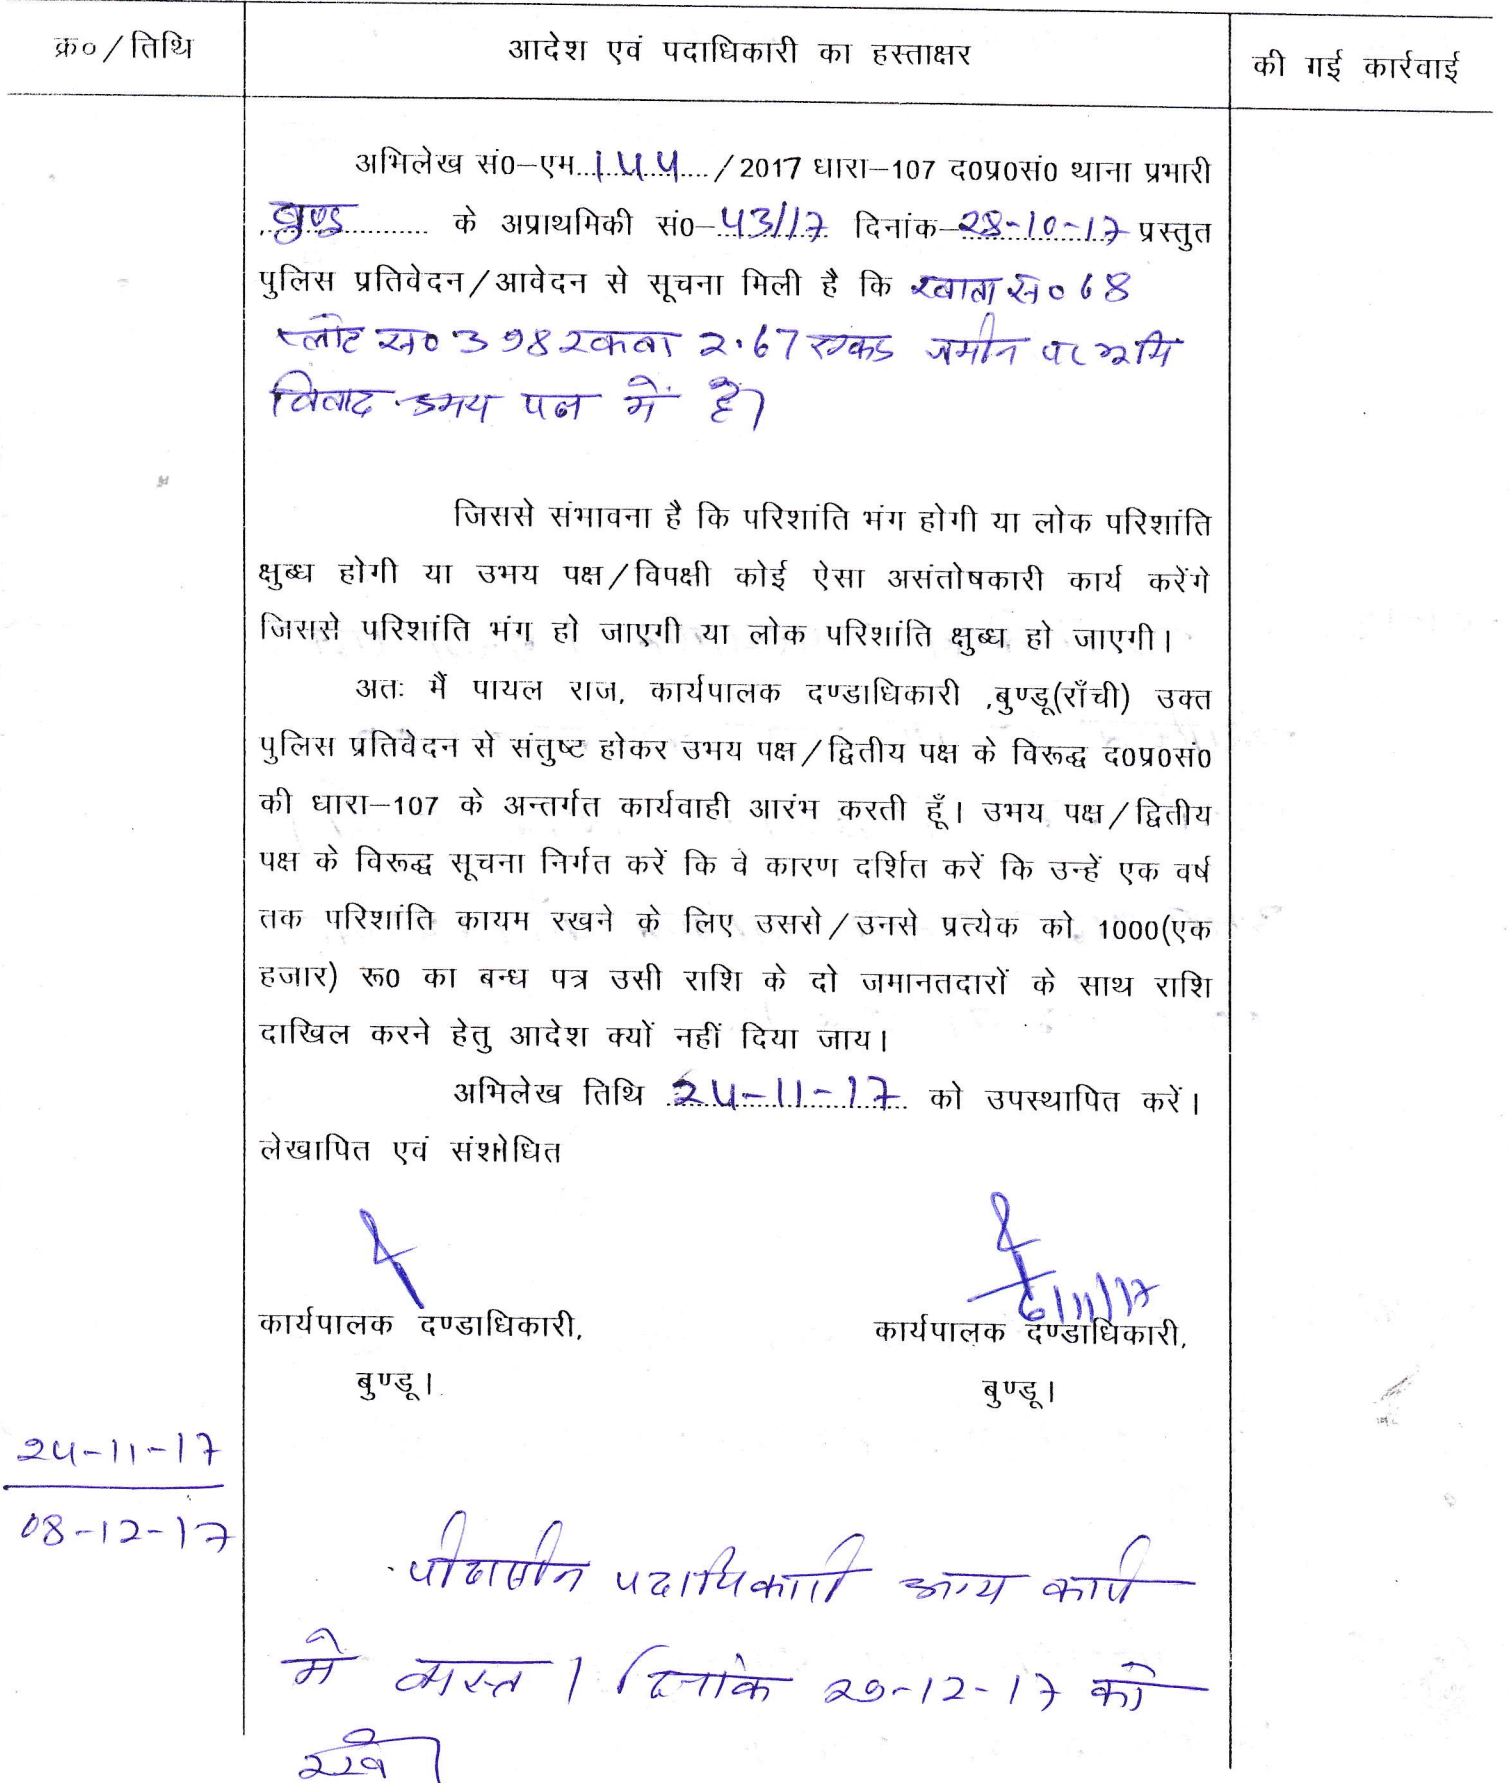 क्र० / तिथि
आदेश एवं पदाधिकारी का हस्ताक्षर
की गई कार्रवाई
अभिलेख सं०–एम..144.../2017 धारा–107 द०प्र०सं० थाना प्रभारी
बुण्डू............ के अप्राथमिकी सं०–43/17 दिनांक–28-10-17 प्रस्तुत
पुलिस प्रतिवेदन/आवेदन से सूचना मिली है कि खाता सं० 68
प्लॉट सं० 398 रकबा 2.67 एकड जमीन पर भूमि
विवाद उभय पक्ष में है।
जिससे संभावना है कि परिशांति भंग होगी या लोक परिशांति
क्षुब्ध होगी या उभय पक्ष/विपक्षी कोई ऐसा असंतोषकारी कार्य करेंगे
जिससे परिशांति भंग हो जाएगी या लोक परिशांति क्षुब्ध हो जाएगी।
अतः मैं पायल राज, कार्यपालक दण्डाधिकारी ,बुण्डू(राँची) उक्त
पुलिस प्रतिवेदन से संतुष्ट होकर उभय पक्ष/द्वितीय पक्ष के विरूद्ध द०प्र०सं०
की धारा–107 के अन्तर्गत कार्यवाही आरंभ करती हूँ। उभय पक्ष/द्वितीय
पक्ष के विरूद्ध सूचना निर्गत करें कि वे कारण दर्शित करें कि उन्हें एक वर्ष
तक परिशांति कायम रखने के लिए उससे/उनसे प्रत्येक को 1000(एक
हजार) रू० का बन्ध पत्र उसी राशि के दो जमानतदारों के साथ राशि
दाखिल करने हेतु आदेश क्यों नहीं दिया जाय।
अभिलेख तिथि 24-11-17 को उपस्थापित करें।
लेखापित एवं संशोधित
6/11/17
कार्यपालक दण्डाधिकारी,
कार्यपालक दण्डाधिकारी,
बुण्डू।
बुण्डू।
24-11-17
08-12-17
पीठासीन पदाधिकारी अन्य कार्य
में व्यस्त। दिनांक 29-12-17 को
रखें।